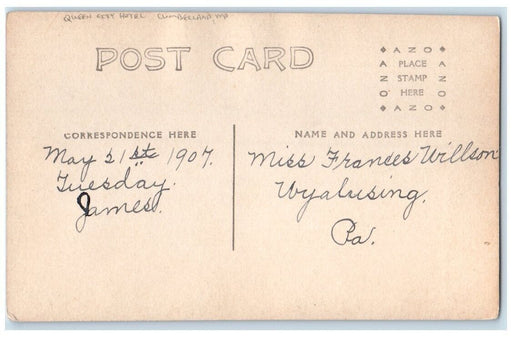 QUEEN CITY HOTEL CUMBERLAND, MD
POST CARD
AZO
PLACE
STAMP
HERE
AZO
AZO
AZO
CORRESPONDENCE HERE
NAME AND ADDRESS HERE
May 21st 1907.
Tuesday.
James.
Miss Frances Willson
Wyalusing,
Pa.